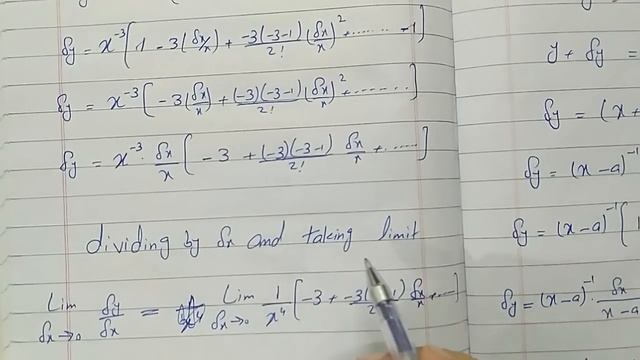 δy = x⁻³[1 - 3(δx/x) + -3(-3-1)/2! (δx/x)² + ....... -1]
δy = x⁻³[-3(δx/x) + (-3)(-3-1)/2! (δx/x)² + .......]
δy = x⁻³ · δx/x [-3 + (-3)(-3-1)/2! δx/x + .....]
dividing by δx and taking limit
Lim δx→0 δy/δx = Lim δx→0 1/x⁴ [-3 + -3( -1)/2 δx/x + ....]
y + δy =
δy = (x +
δy = (x-a)⁻¹
δy = (x-a)⁻¹[1
δy = (x-a)⁻¹ · δx/x-a